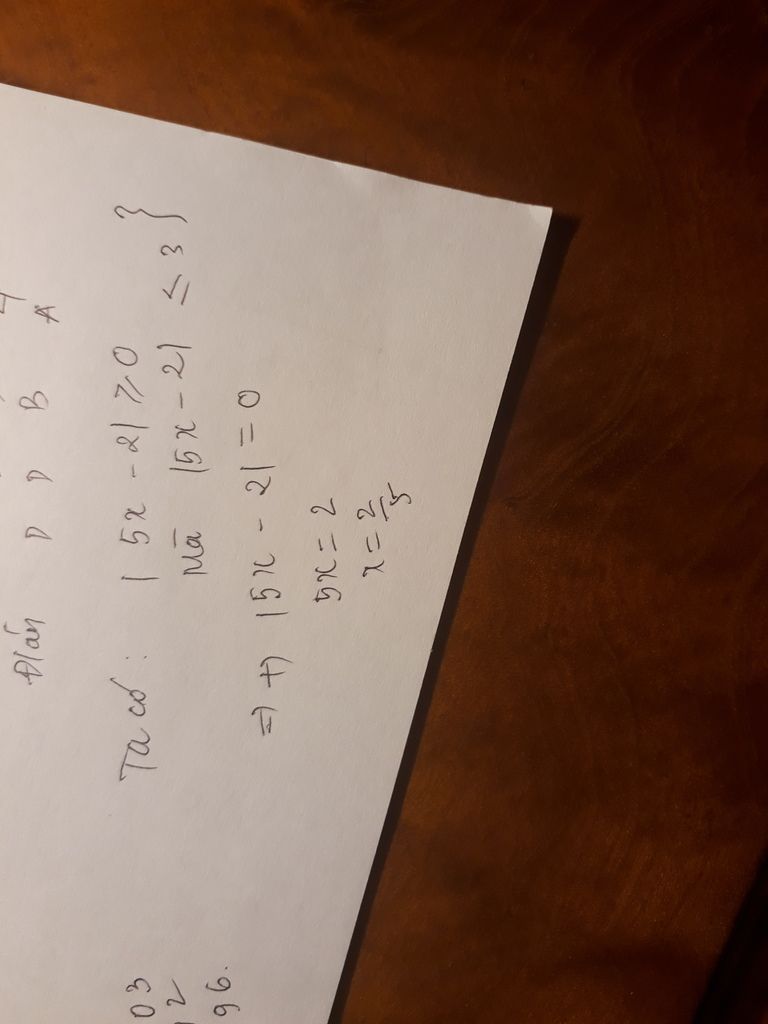 Đáp D D B A
Ta có: | 5x - 2| ≥ 0 }
Mà |5x - 2| ≤ 3 }
=> +) |5x - 2| = 0
5x = 2
x = 2/5
03
2
96.